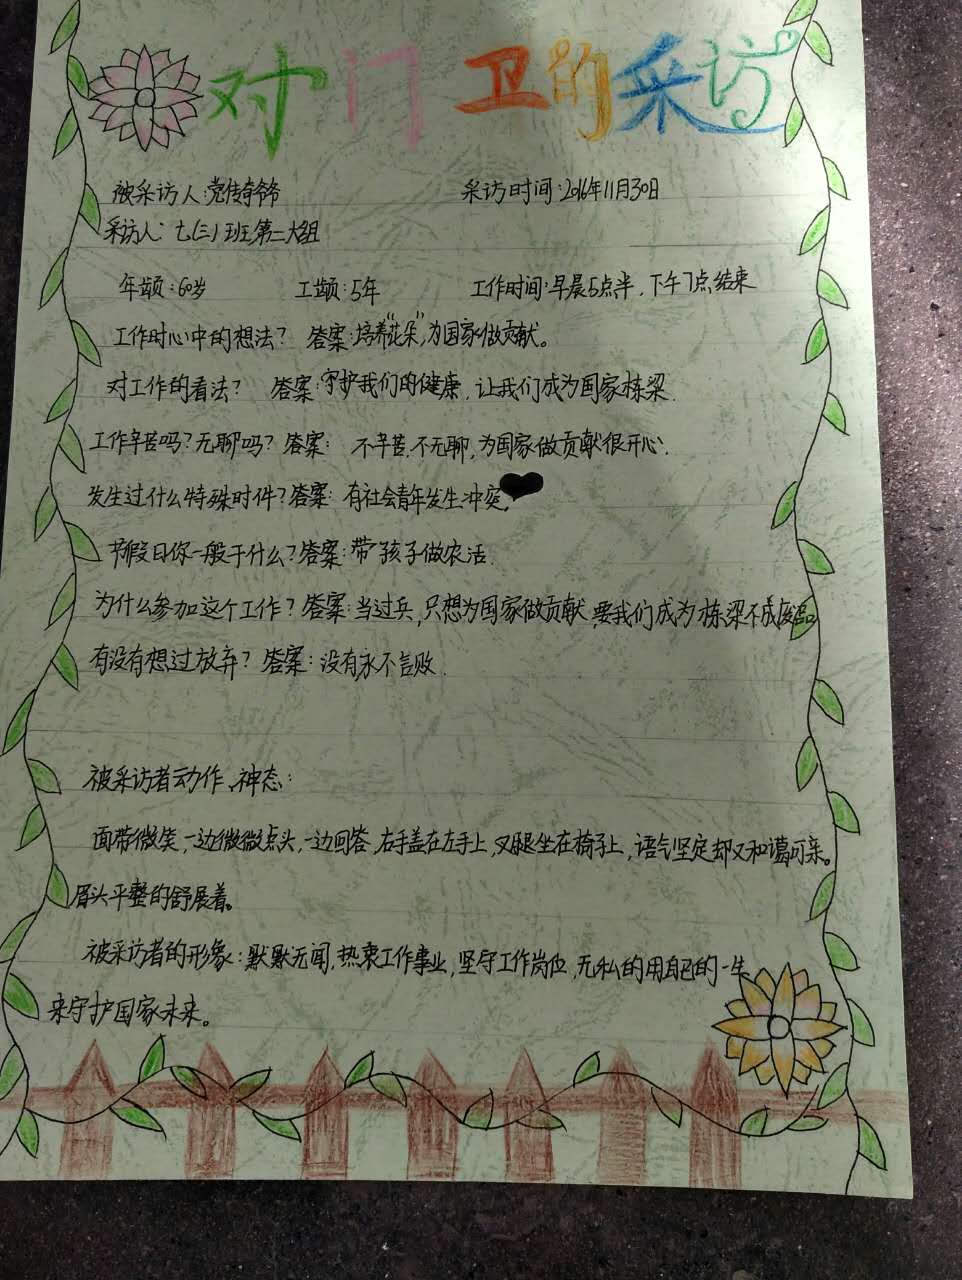 对门卫的采访
被采访人:党传爷爷 采访时间:2016年11月30日
采访人:七(三)班第二大组
年龄:60岁 工龄:5年 工作时间:早晨5点半,下午7点结束
工作时心中的想法? 答案:培养"花朵",为国家做贡献。
对工作的看法? 答案:守护我们的健康,让我们成为国家栋梁.
工作辛苦吗?无聊吗?答案: 不辛苦.不无聊,为国家做贡献很开心.
发生过什么特殊时件?答案:有社会青年发生冲突.
节假日你一般干什么?答案:带孩子做农活.
为什么参加这个工作?答案:当过兵,只想为国家做贡献,要我们成为栋梁不成废品
有没有想过放弃? 答案:没有,永不言败.
被采访者动作、神态:
面带微笑,一边微微点头,一边回答,右手盖在左手上,叉腿坐在椅子上,语气坚定却又和蔼可亲。
眉头平整的舒展着。
被采访者的形象:默默无闻,热衷工作事业,坚守工作岗位,无私的用自己的一生
来守护国家未来。